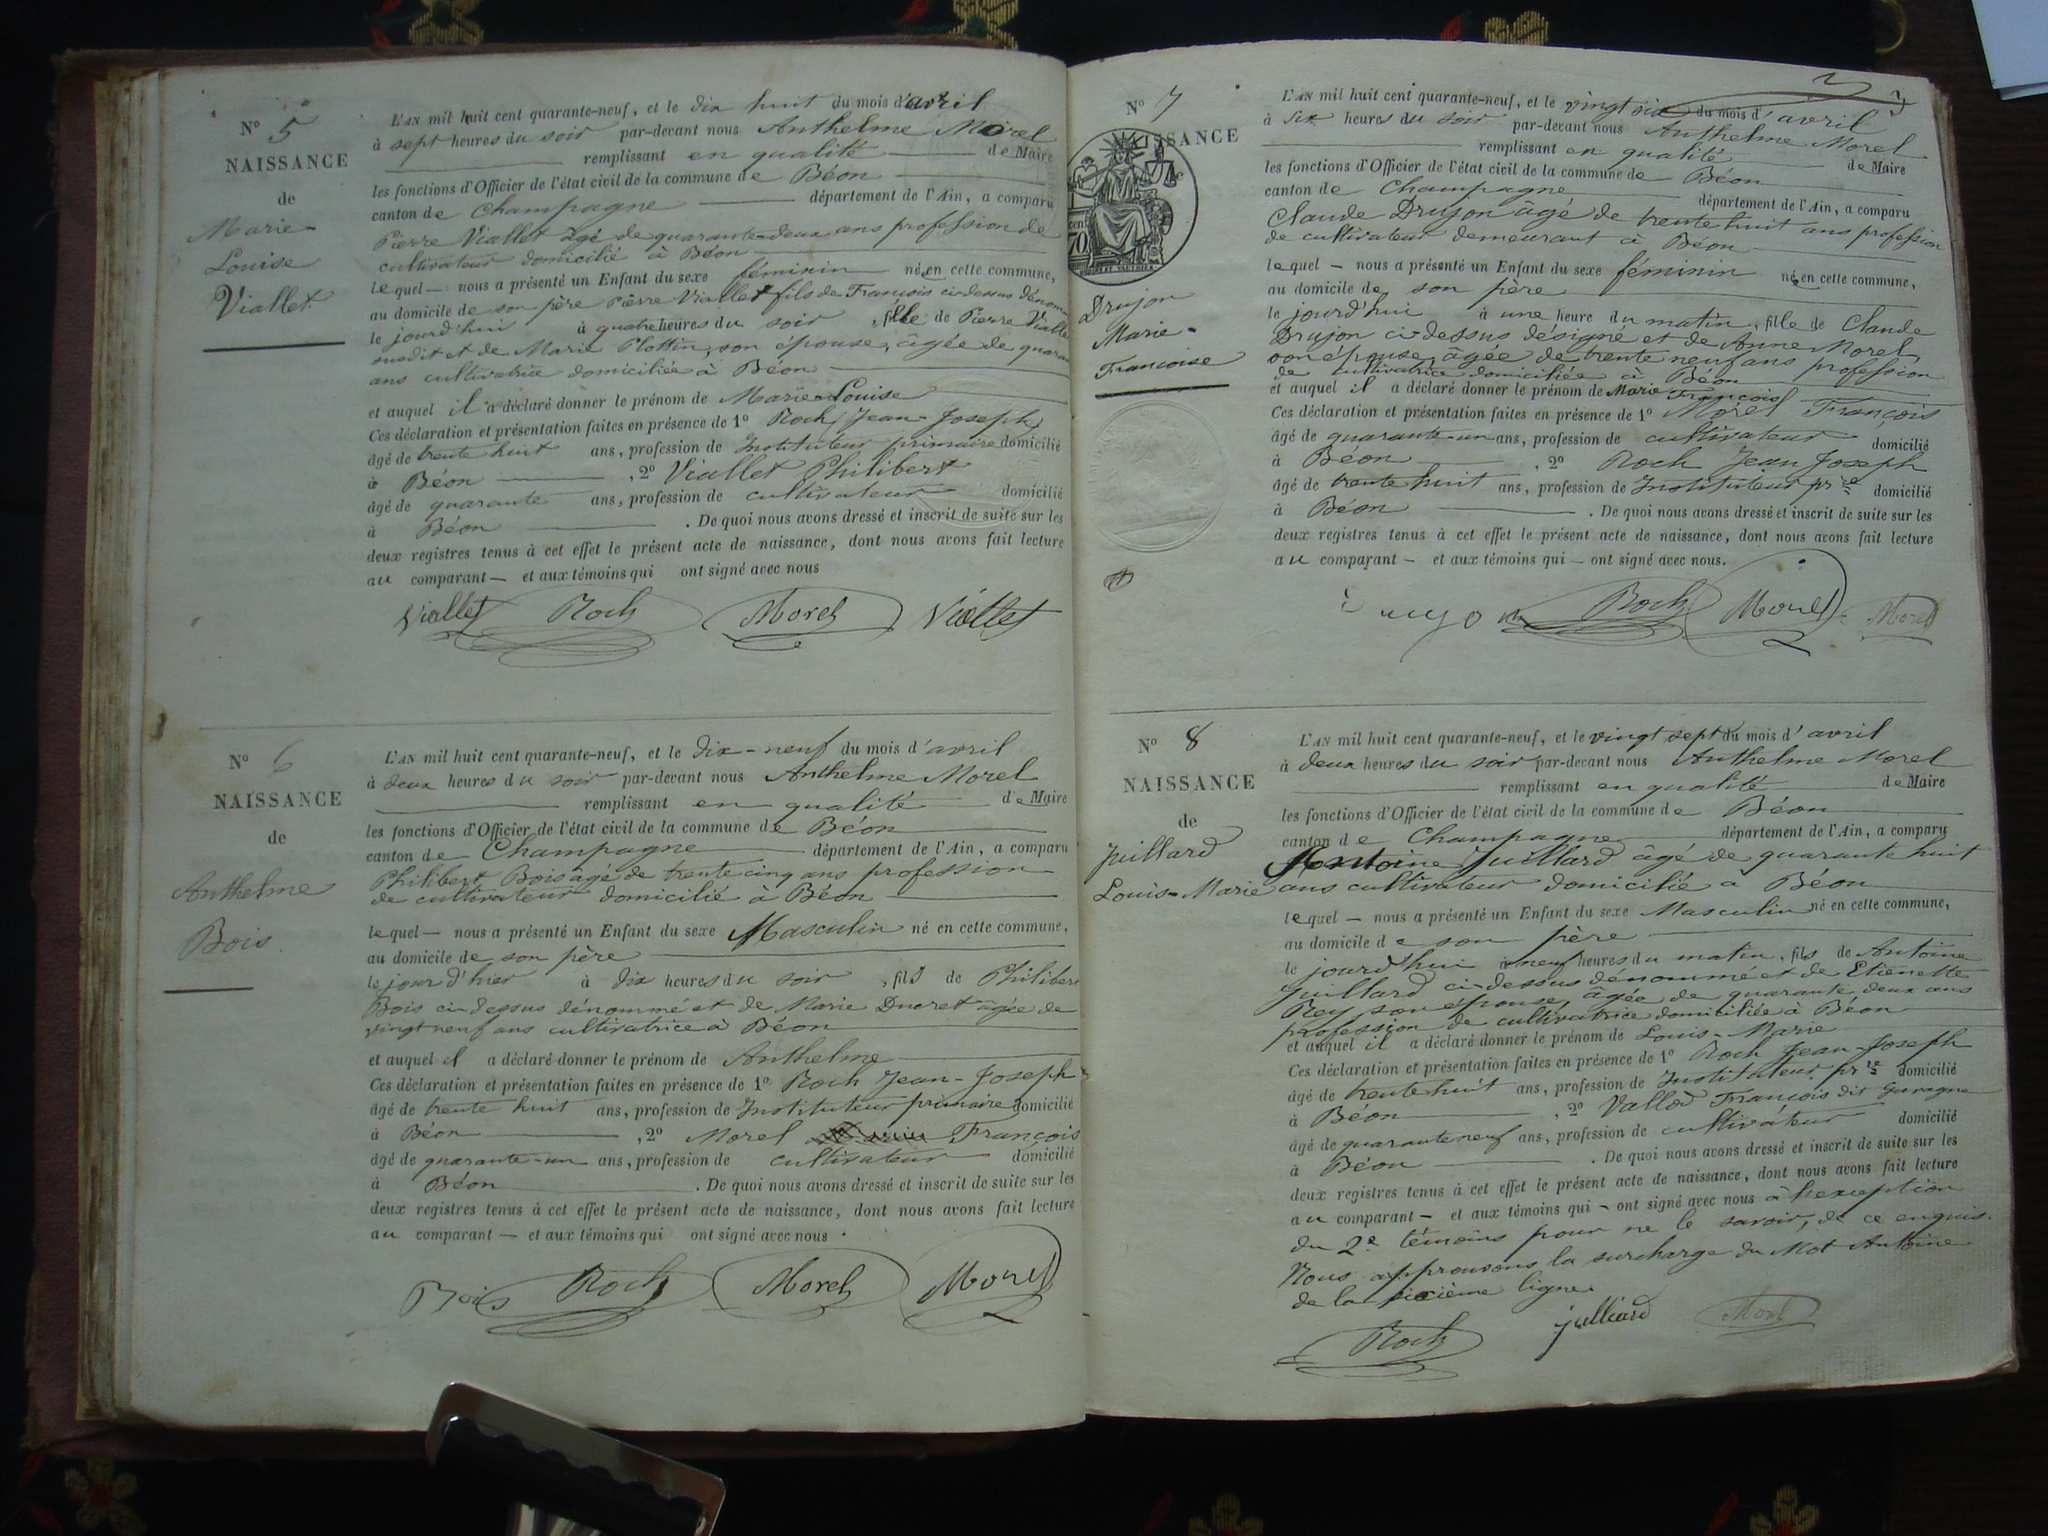 N° 5
NAISSANCE
de
Marie-
Louise
Viallet
L'AN mil huit cent quarante-neuf, et le dix huit du mois d'avril
à sept heures du soir par-devant nous Anthelme Morel
remplissant en qualité de Maire
les fonctions d'Officier de l'état civil de la commune de Béon
canton de Champagne département de l'Ain, a comparu
Pierre Viallet âgé de quarante-deux ans profession de
cultivateur domicilié à Béon
lequel — nous a présenté un Enfant du sexe féminin né en cette commune,
au domicile de son père Pierre Viallet fils de François ci-dessus dénommé
le jourd'hui à quatre heures du soir, fille de Pierre Viallet
susdit et de Marie Plottin, son épouse, âgée de quarante
ans cultivatrice domiciliée à Béon
et auquel il a déclaré donner le prénom de Marie-Louise
Ces déclaration et présentation faites en présence de 1° Roch Jean-Joseph
âgé de trente huit ans, profession de Instituteur primaire domicilié
à Béon, 2° Viallet Philibert
âgé de quarante ans, profession de cultivateur domicilié
à Béon. De quoi nous avons dressé et inscrit de suite sur les
deux registres tenus à cet effet le présent acte de naissance, dont nous avons fait lecture
au comparant — et aux témoins qui ont signé avec nous
Viallet Roch Morel Viallet
N° 6
NAISSANCE
de
Anthelme
Bois
L'AN mil huit cent quarante-neuf, et le dix-neuf du mois d'avril
à deux heures du soir par-devant nous Anthelme Morel
remplissant en qualité de Maire
les fonctions d'Officier de l'état civil de la commune de Béon
canton de Champagne département de l'Ain, a comparu
Philibert Bois âgé de trente cinq ans profession
de cultivateur domicilié à Béon
lequel — nous a présenté un Enfant du sexe Masculin né en cette commune,
au domicile de son père
le jour d'hier à dix heures du soir, fils de Philibert
Bois ci-dessus dénommé et de Marie Ducret âgée de
vingt neuf ans cultivatrice à Béon
et auquel il a déclaré donner le prénom de Anthelme
Ces déclaration et présentation faites en présence de 1° Roch Jean-Joseph
âgé de trente huit ans, profession de Instituteur primaire domicilié
à Béon, 2° Morel François
âgé de quarante-un ans, profession de cultivateur domicilié
à Béon. De quoi nous avons dressé et inscrit de suite sur les
deux registres tenus à cet effet le présent acte de naissance, dont nous avons fait lecture
au comparant — et aux témoins qui ont signé avec nous.
Bois Roch Morel Morel
N° 7
ISSANCE
70
Drujon
Marie-
Françoise
L'AN mil huit cent quarante-neuf, et le vingt six du mois d'avril
à six heures du soir par-devant nous Anthelme Morel
remplissant en qualité de Maire
les fonctions d'Officier de l'état civil de la commune de Béon
canton de Champagne département de l'Ain, a comparu
Claude Drujon âgé de trente huit ans profession
de cultivateur demeurant à Béon
lequel — nous a présenté un Enfant du sexe féminin né en cette commune,
au domicile de son père
le jourd'hui à une heure du matin, fille de Claude
Drujon ci-dessus désigné et de Anne Morel,
son épouse, âgée de trente neuf ans profession
de cultivatrice domiciliée à Béon
et auquel il a déclaré donner le prénom de Marie Françoise
Ces déclaration et présentation faites en présence de 1° Morel François
âgé de quarante-un ans, profession de cultivateur domicilié
à Béon, 2° Roch Jean Joseph
âgé de trente huit ans, profession de Instituteur pre domicilié
à Béon. De quoi nous avons dressé et inscrit de suite sur les
deux registres tenus à cet effet le présent acte de naissance, dont nous avons fait lecture
au comparant — et aux témoins qui — ont signé avec nous.
Roch Morel Morel
N° 8
NAISSANCE
de
Juillard
Louis-Marie
L'AN mil huit cent quarante-neuf, et le vingt sept du mois d'avril
à deux heures du soir par-devant nous Anthelme Morel
remplissant en qualité de Maire
les fonctions d'Officier de l'état civil de la commune de Béon
canton de Champagne département de l'Ain, a comparu
Antoine Juillard âgé de quarante huit
ans cultivateur domicilié à Béon
lequel — nous a présenté un Enfant du sexe Masculin né en cette commune,
au domicile de son père
le jourd'hui à neuf heures du matin, fils de Antoine
Juillard ci-dessus dénommé et de Etienette
Rey son épouse, âgée de quarante deux ans
profession de cultivatrice domiciliée à Béon
et auquel il a déclaré donner le prénom de Louis-Marie
Ces déclaration et présentation faites en présence de 1° Roch Jean-Joseph
âgé de trente huit ans, profession de Instituteur pre domicilié
à Béon, 2° Vallod François dit
âgé de quarante neuf ans, profession de cultivateur domicilié
à Béon. De quoi nous avons dressé et inscrit de suite sur les
deux registres tenus à cet effet le présent acte de naissance, dont nous avons fait lecture
au comparant — et aux témoins qui — ont signé avec nous à l'exception
du 2e témoins pour ne le savoir, de ce enquis.
Nous approuvons la surcharge du Mot Antoine
de la sixième ligne
Roch juilliard Morel